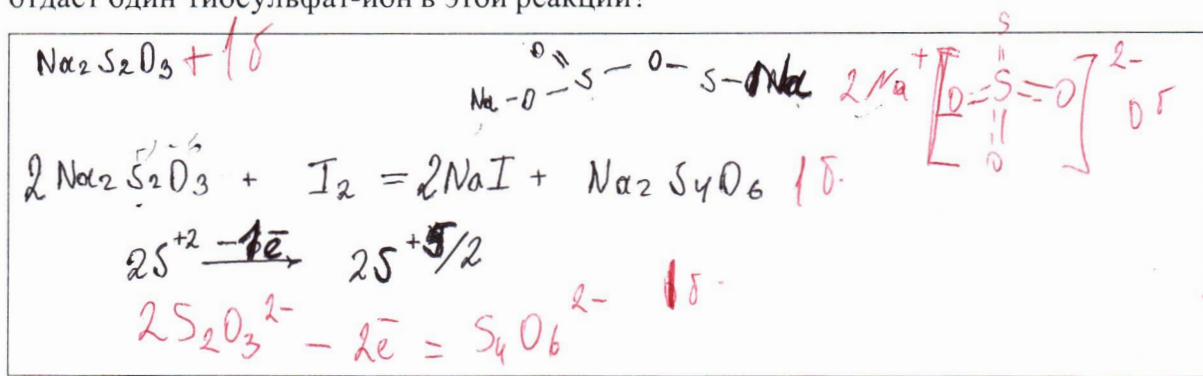 отдает один тиосульфат-ион в этой реакции?
Na₂S₂O₃ + 1 б
O
Na-O - S - O - S - ONa
2 Na⁺ [O = S = O]²⁻
S
O
0 б
2 Na₂S₂O₃ + I₂ = 2NaI + Na₂S₄O₆ 1 б.
2S⁺² -1ē → 2S⁺⁵/²
2S₂O₃²⁻ - 2ē = S₄O₆²⁻ 1 б.